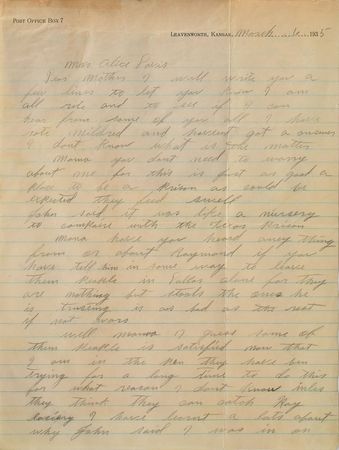 POST OFFICE BOX 7
LEAVENWORTH, KANSAS, March 6, 1935
Miss Alice Davis
Dear Mother I will write you a
few lines to let you know I am
all rite and to see if I can
hear from some of you all I have
rote Mildred and havent got a answer
I dont know what is the matter
Mama you dont need to worry
about me for this is just as good a
place to be a Prison as could be
expected they feed swell
John said it was like a nursery
to compare with the Texas Prison
Mama have you heard aney thing
from or about Raymond if you
have tell him in some way to leave
them People in Dallas alone for they
are nothing but stools the ones he
is trusting is as bad as the rest
if not worse
well mama I guess some of
them People is satisfied now that
I am in the Pen they have ben
trying for a long time to do this
for what reason I dont know unless
they think they can catch Ray
I have learnt a lots about
why John said I was in on